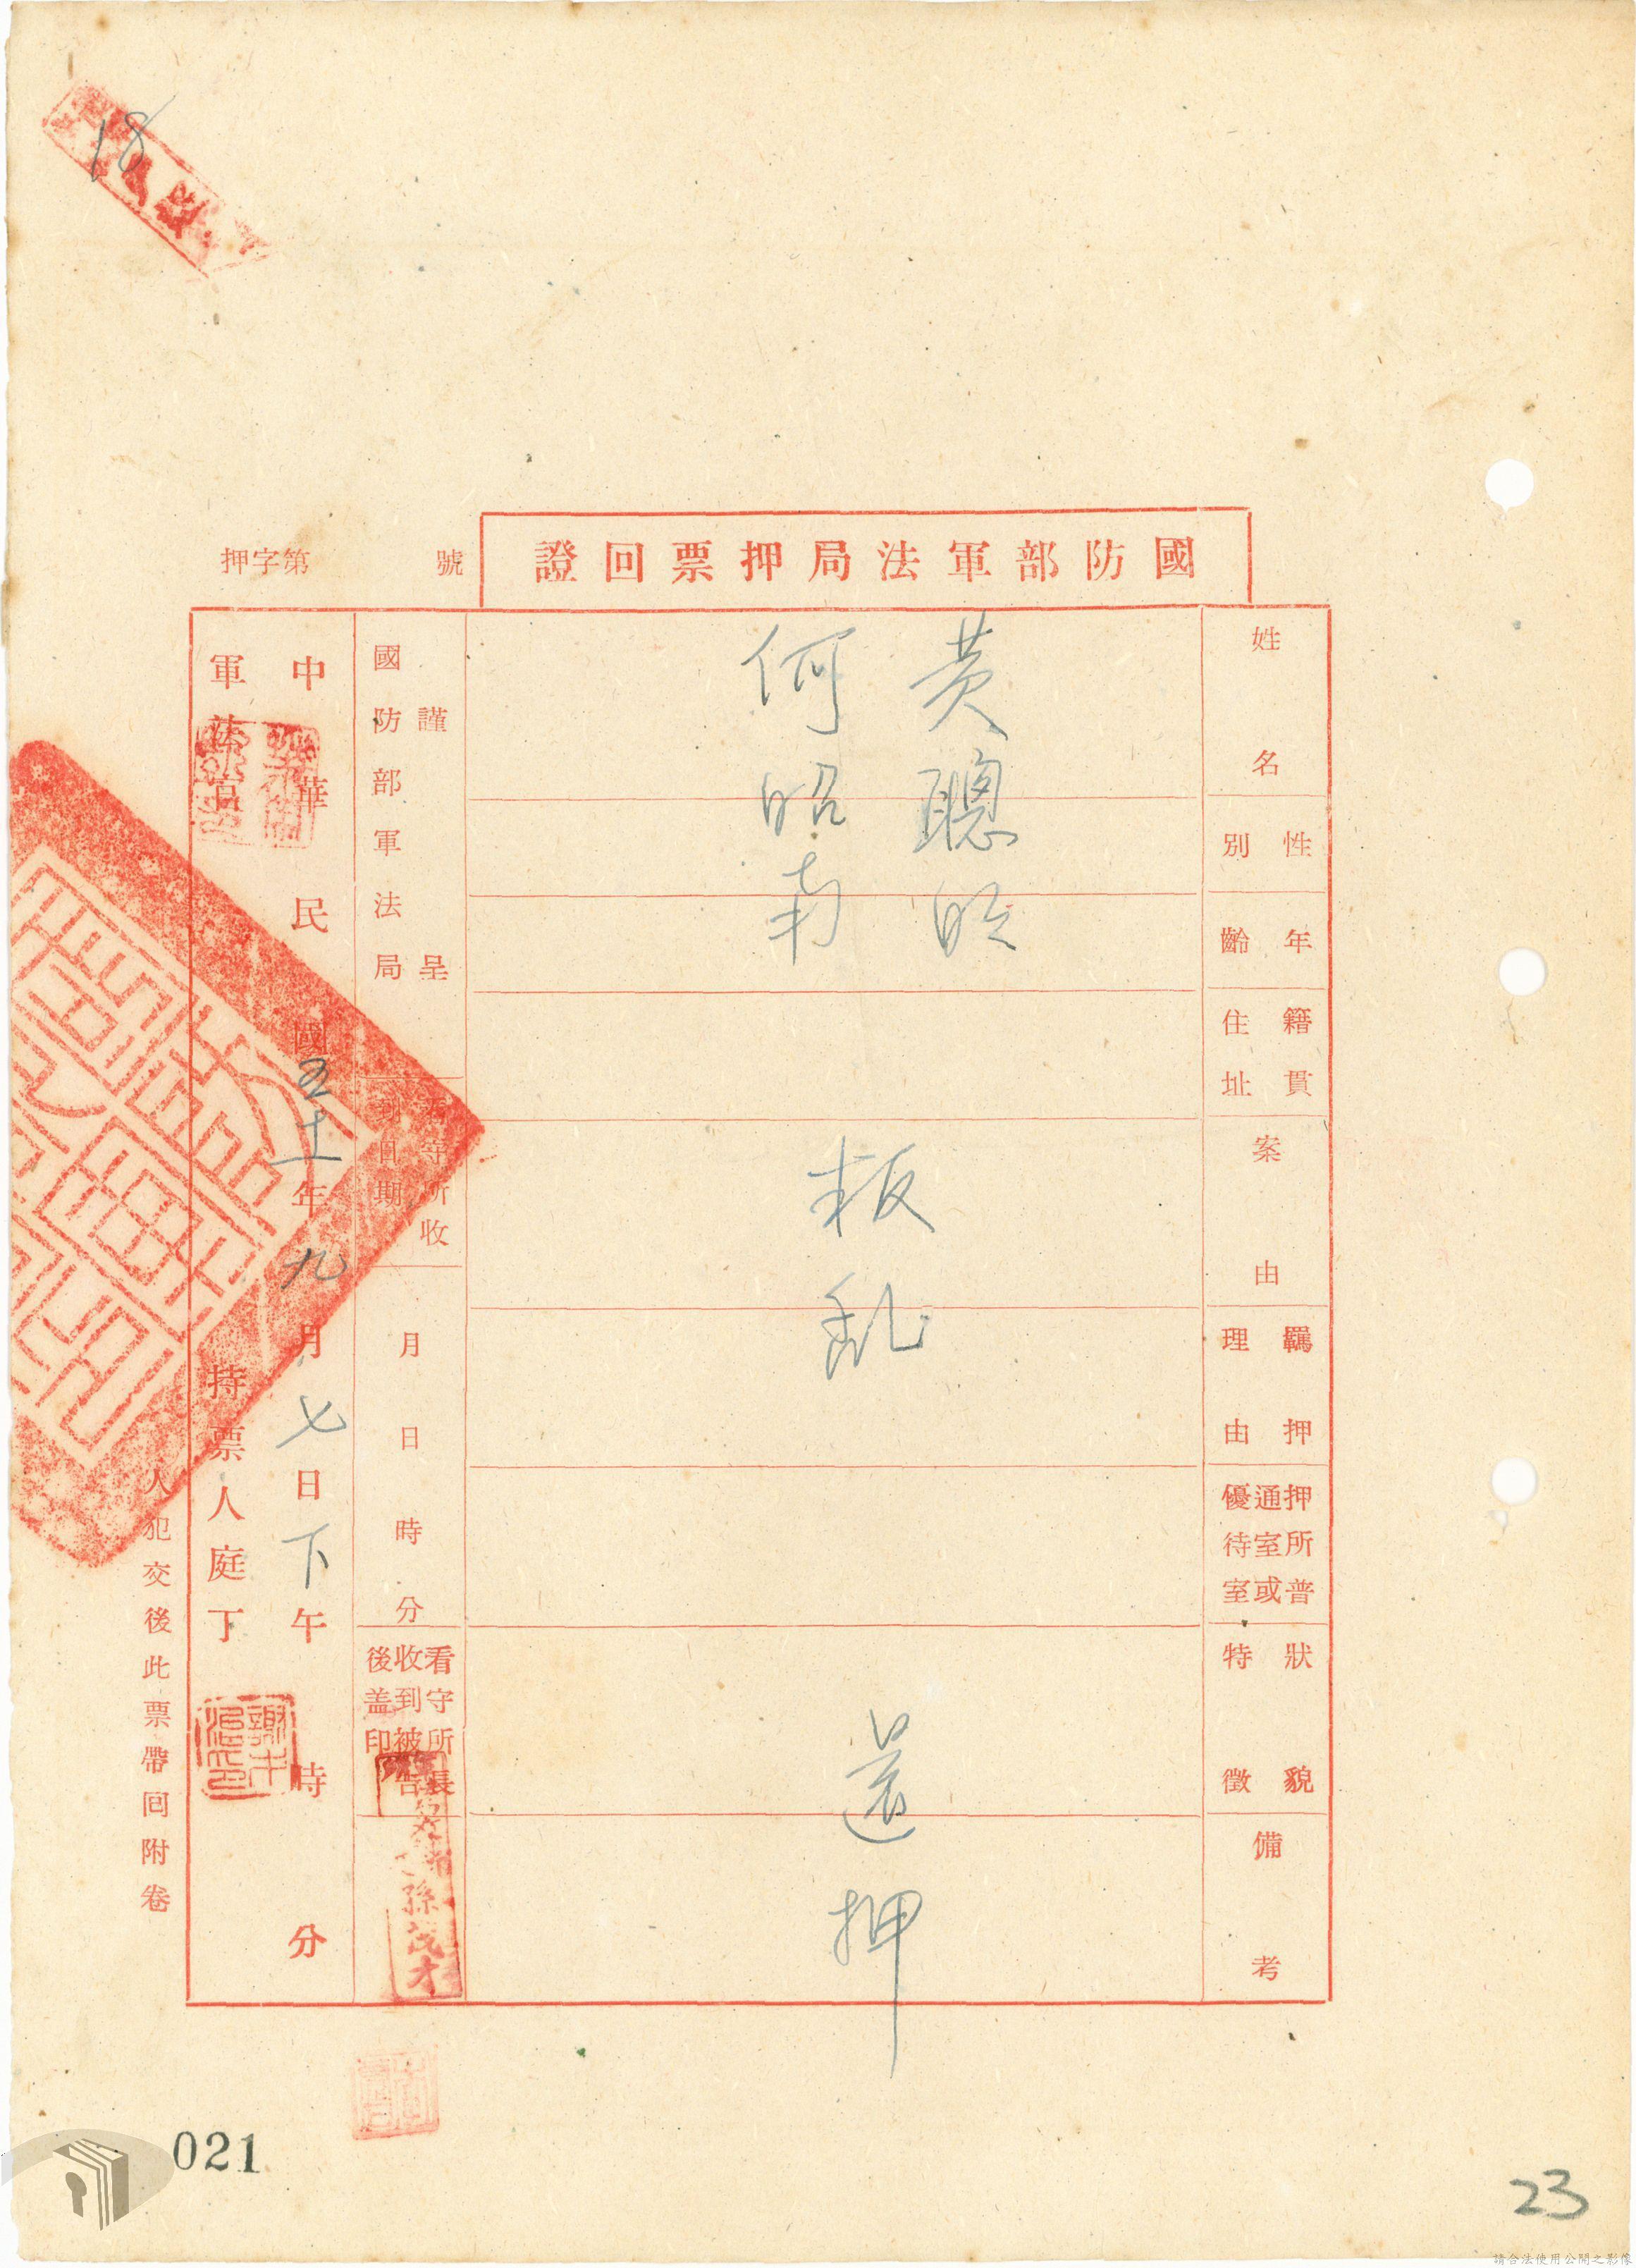 18
國防部軍法局押票回證
押字第 號
姓名
黃聰明
何昭南
性別
年齡
籍貫
住址
案由
叛乱
羈押
理由
押所普
通室或
優待室
狀貌
特徵
備考
還押
謹呈
國防部軍法局
看守所收
到日期
月日時分
看守所長
收到被告
後盖印
孫茂才
中華民國五十一年九月七日下午 時 分
軍法官
持票人庭丁
人犯交後此票帶回附卷
021
23
請合法使用公開之影像